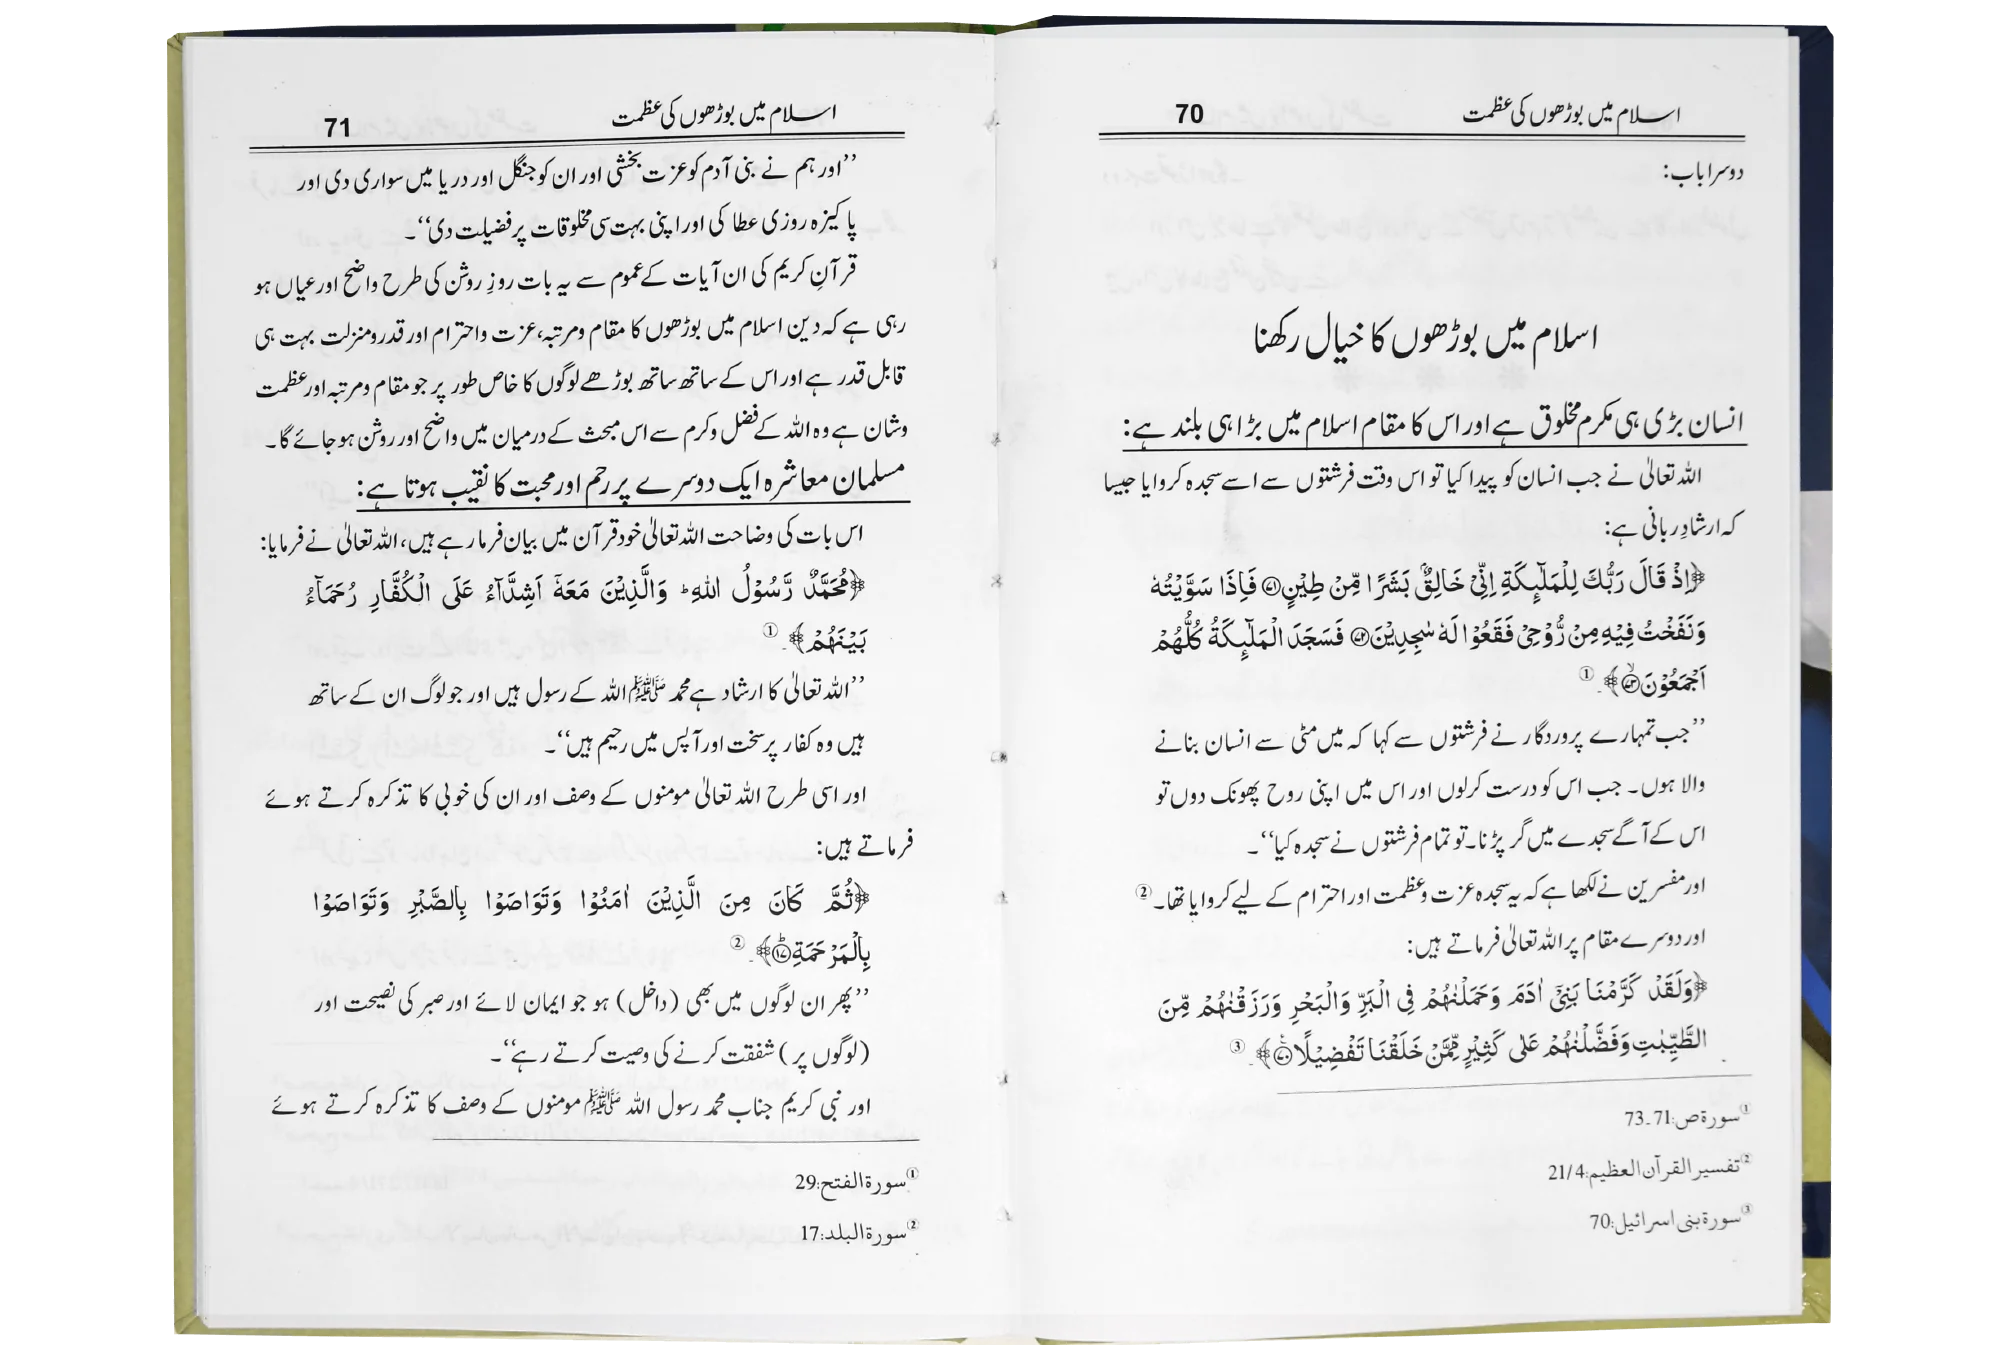 اسلام میں بوڑھوں کی عظمت 70
دوسرا باب:
اسلام میں بوڑھوں کا خیال رکھنا
انسان بڑی ہی مکرم مخلوق ہے اور اس کا مقام اسلام میں بڑا ہی بلند ہے:
اللہ تعالیٰ نے جب انسان کو پیدا کیا تو اس وقت فرشتوں سے اسے سجدہ کروایا جیسا
کہ ارشادِ ربانی ہے:
﴿اِذْ قَالَ رَبُّكَ لِلْمَلٰٓىِٕكَةِ اِنِّیْ خَالِقٌۢ بَشَرًا مِّنْ طِیْنٍ۝۷۱ فَاِذَا سَوَّیْتُهٗ
وَنَفَخْتُ فِیْهِ مِنْ رُّوْحِیْ فَقَعُوْا لَهٗ سٰجِدِیْنَ۝۷۲ فَسَجَدَ الْمَلٰٓىِٕكَةُ كُلُّهُمْ
اَجْمَعُوْنَۙ۝۷۳﴾۔ ①
’’جب تمہارے پروردگار نے فرشتوں سے کہا کہ میں مٹی سے انسان بنانے
والا ہوں۔ جب اس کو درست کرلوں اور اس میں اپنی روح پھونک دوں تو
اس کے آگے سجدے میں گر پڑنا۔ تو تمام فرشتوں نے سجدہ کیا‘‘۔
اور مفسرین نے لکھا ہے کہ یہ سجدہ عزت و عظمت اور احترام کے لیے کروایا تھا۔ ②
اور دوسرے مقام پر اللہ تعالیٰ فرماتے ہیں:
﴿وَلَقَدْ كَرَّمْنَا بَنِیْۤ اٰدَمَ وَحَمَلْنٰهُمْ فِی الْبَرِّ وَالْبَحْرِ وَرَزَقْنٰهُمْ مِّنَ
الطَّیِّبٰتِ وَفَضَّلْنٰهُمْ عَلٰی كَثِیْرٍ مِّمَّنْ خَلَقْنَا تَفْضِیْلًا۠۝۷۰﴾۔ ③
① سورۃ ص:71۔73
② تفسیر القرآن العظیم:21/4
③ سورۃ بنی اسرائیل:70
اسلام میں بوڑھوں کی عظمت 71
’’اور ہم نے بنی آدم کو عزت بخشی اور ان کو جنگل اور دریا میں سواری دی اور
پاکیزہ روزی عطا کی اور اپنی بہت سی مخلوقات پر فضیلت دی‘‘۔
قرآنِ کریم کی ان آیات کے عموم سے یہ بات روزِ روشن کی طرح واضح اور عیاں ہو
رہی ہے کہ دین اسلام میں بوڑھوں کا مقام ومرتبہ، عزت واحترام اور قدرومنزلت بہت ہی
قابل قدر ہے اور اس کے ساتھ ساتھ بوڑھے لوگوں کا خاص طور پر جو مقام ومرتبہ اور عظمت
وشان ہے وہ اللہ کے فضل وکرم سے اس مبحث کے درمیان میں واضح اور روشن ہو جائے گا۔
مسلمان معاشرہ ایک دوسرے پر رحم اور محبت کا نقیب ہوتا ہے:
اس بات کی وضاحت اللہ تعالیٰ خود قرآن میں بیان فرما رہے ہیں، اللہ تعالیٰ نے فرمایا:
﴿مُحَمَّدٌ رَّسُوْلُ اللّٰهِ ؕ وَالَّذِیْنَ مَعَهٗۤ اَشِدَّآءُ عَلَی الْكُفَّارِ رُحَمَآءُ
بَیْنَهُمْ﴾۔ ①
’’اللہ تعالیٰ کا ارشاد ہے محمد ﷺ اللہ کے رسول ہیں اور جو لوگ ان کے ساتھ
ہیں وہ کفار پر سخت اور آپس میں رحیم ہیں‘‘۔
اور اسی طرح اللہ تعالیٰ مومنوں کے وصف اور ان کی خوبی کا تذکرہ کرتے ہوئے
فرماتے ہیں:
﴿ثُمَّ كَانَ مِنَ الَّذِیْنَ اٰمَنُوْا وَتَوَاصَوْا بِالصَّبْرِ وَتَوَاصَوْا
بِالْمَرْحَمَةِؕ۝۱۷﴾۔ ②
’’پھر ان لوگوں میں بھی (داخل) ہو جو ایمان لائے اور صبر کی نصیحت اور
(لوگوں پر) شفقت کرنے کی وصیت کرتے رہے‘‘۔
اور نبی کریم جناب محمد رسول اللہ ﷺ مومنوں کے وصف کا تذکرہ کرتے ہوئے
① سورۃ الفتح:29
② سورۃ البلد:17